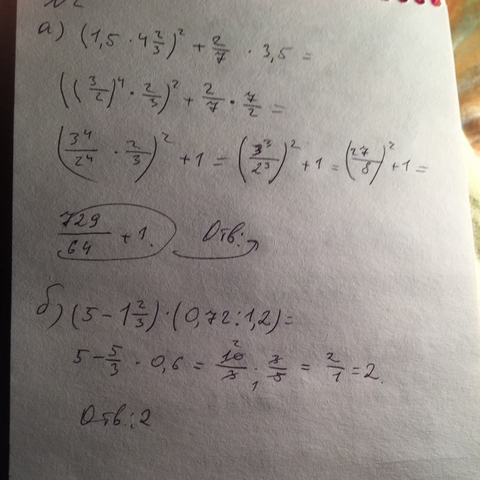 №2
а) (1,5 · 4 2/3)² + 2/7 · 3,5 =
((3/2)⁴ · 2/3)² + 2/7 · 7/2 =
(3⁴/2⁴ · 2/3)² + 1 = (3³/2³)² + 1 = (27/8)² + 1 =
729/64 + 1. Отв:
б) (5 - 1 2/3) · (0,72 : 1,2) =
5 - 5/3 · 0,6 = 10/3 · 3/5 = 2/1 = 2.
Отв: 2